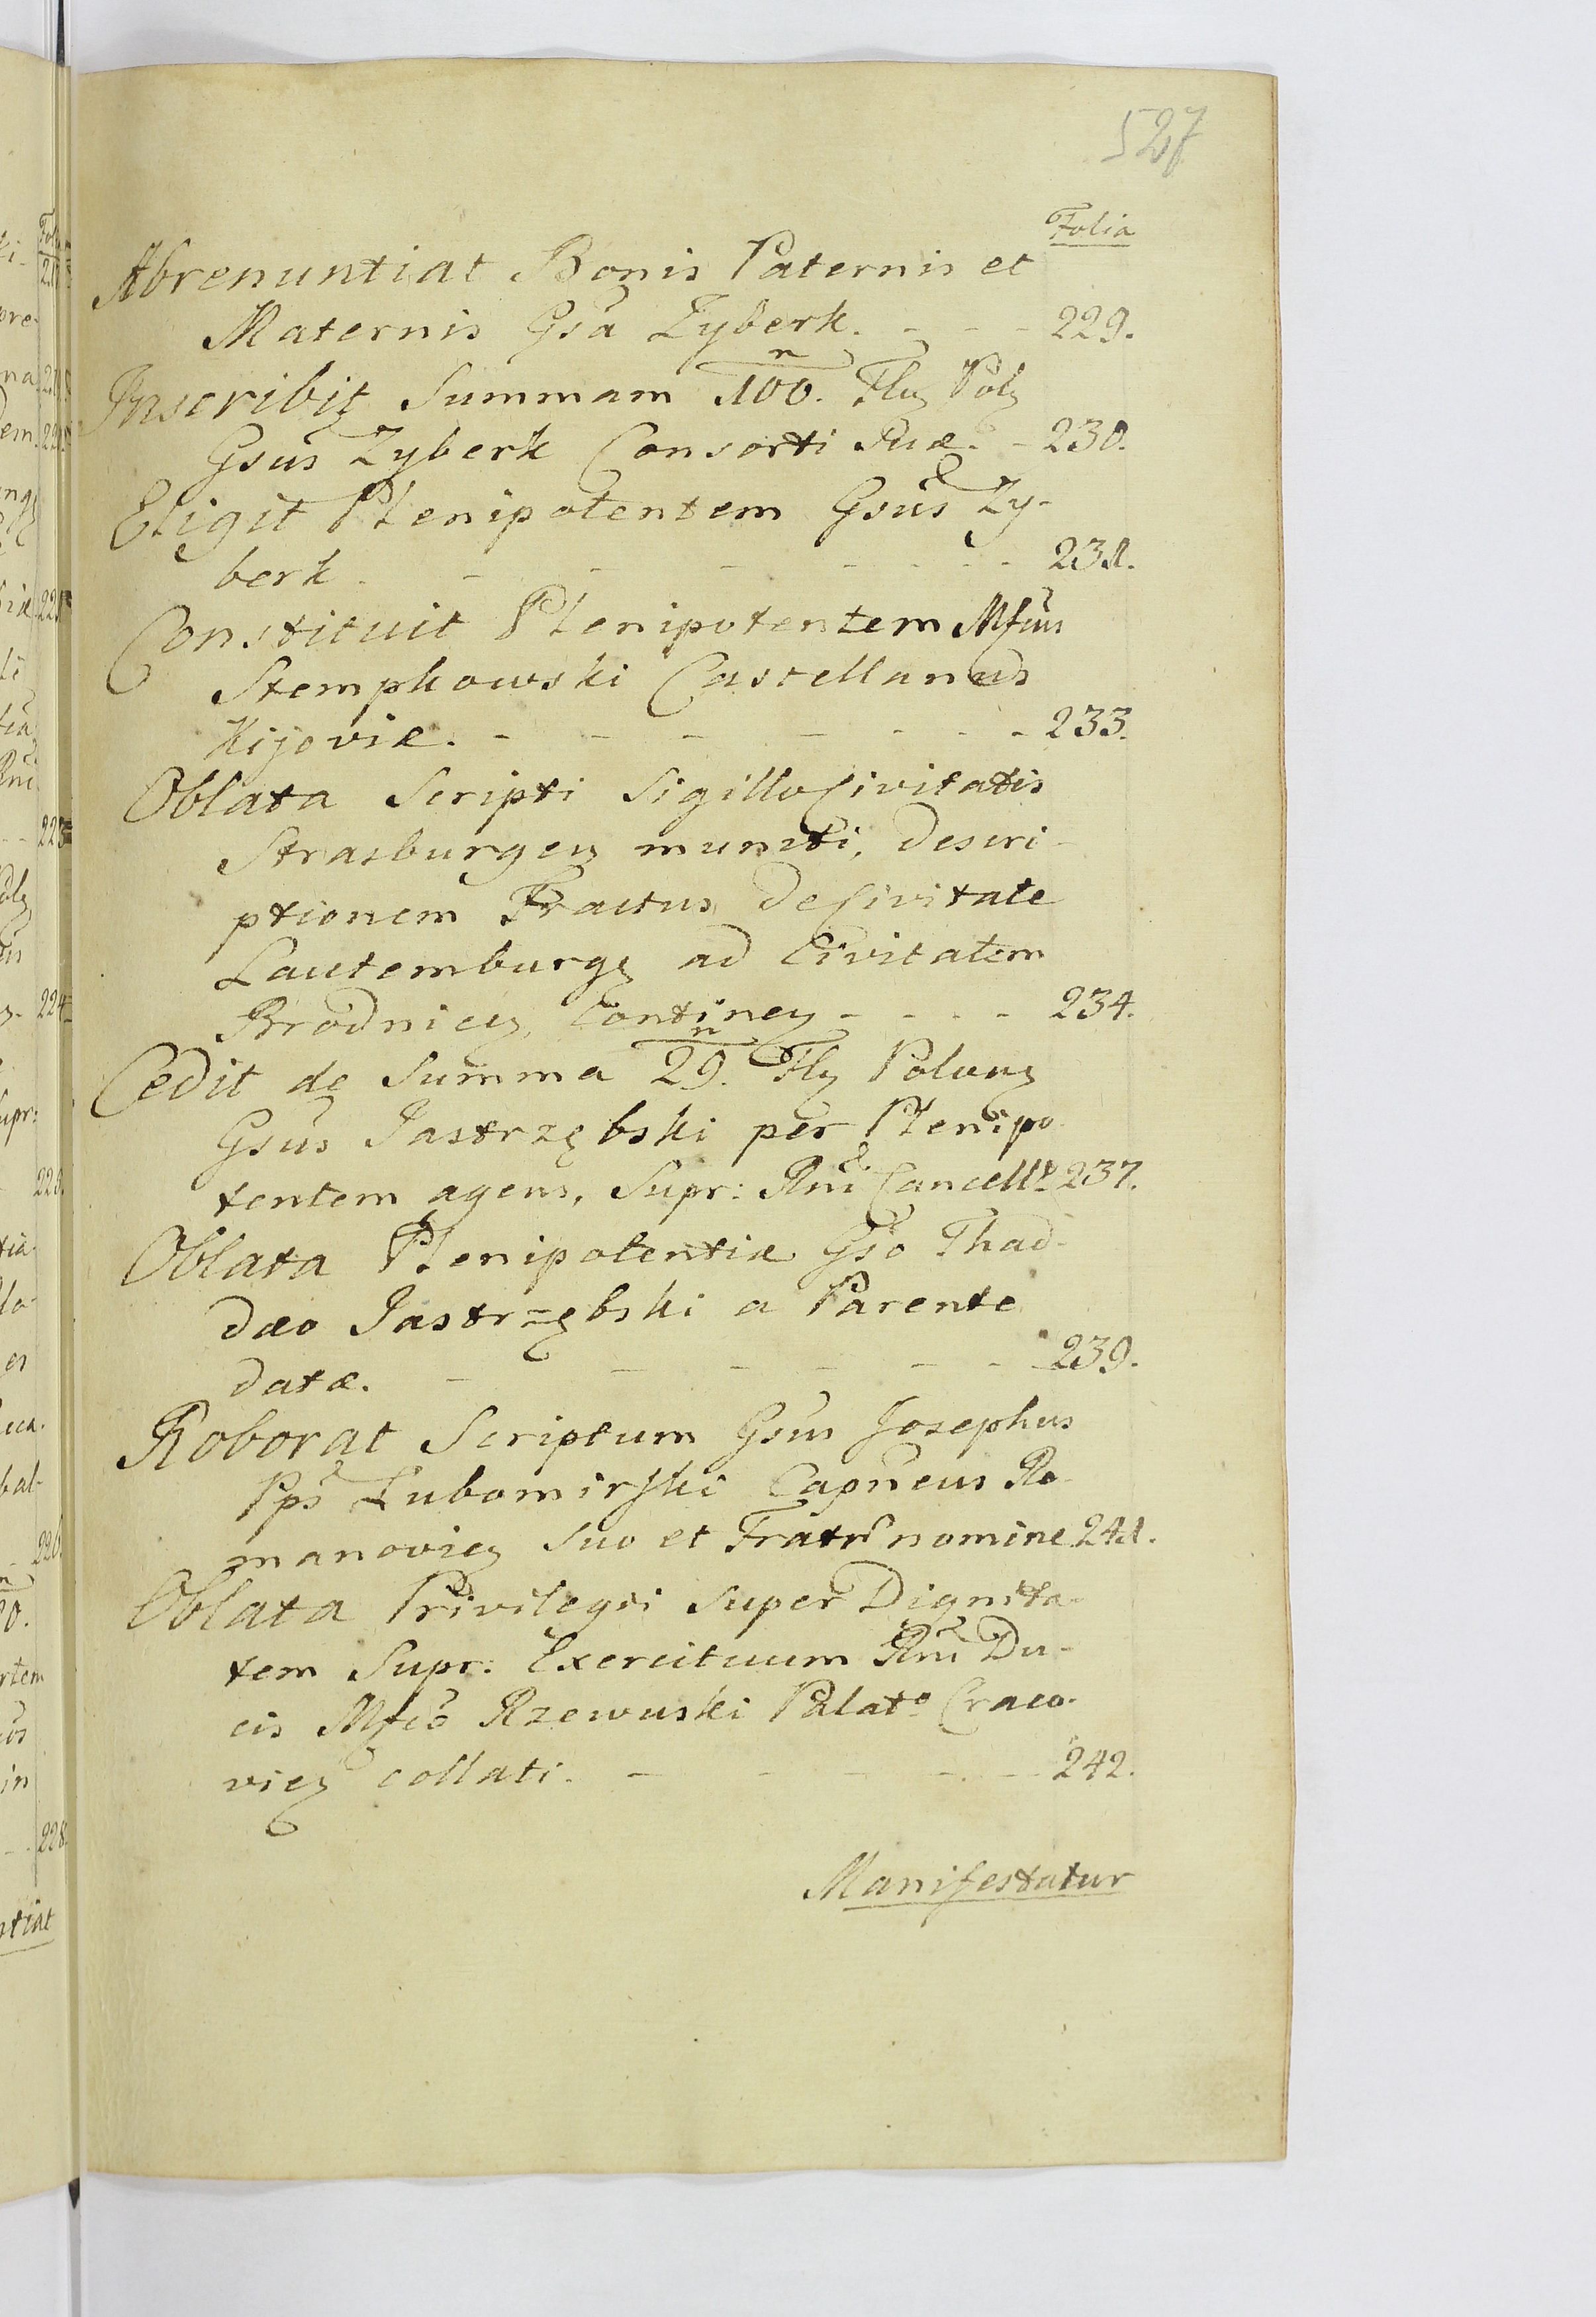 527
Folia
Abrenuntiat Bonis Paternis et
Maternis Gsa Zyberk. - - - 229.
n
Inscribit Summam 100. Flp Polp
Gsus Zyberk Consorti suæ. - 230.
Eligit Plenipotentem Gsus Zy-
berk. - - - - - - 231.
Constituit Plenipotentem Mfcus
Stempkowski Castellanus
Kijoviæ. - - - - - - 233.
Oblata Scripti sigillo Civitatis
Strasburgen muniti, descri-
ptionem Tractus de Civitate
Lautemburg ad Civitatem
Brodnicen, Continen - - - - 234.
n
Cedit de Summa 29. Flp Polon
Gsus Jastrzębski per Plenipo
tentem agens, Supr: Rni Cancello 237.
Oblata Plenipotentiæ Gso Thad-
dæo Jastrzębski a Parente
datæ. - - - - - - 239.
Roborat Scriptum Gsus Josephus
Pps Lubomirski Capneus Ro-
manovien suo et Fratrũ nomine 241.
Oblata Privilegii super Dignita-
tem Supr: Exercituum Rni Du-
cis Mfco Rzewuski Palato Craco-
vien collati. - - - - - 242.
Manifestatur